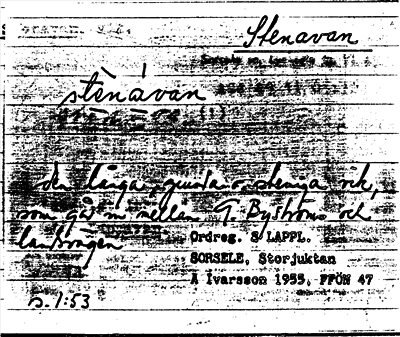 Stenavan
stènávan
den långa, grunda o. steniga vik,
som går in mellan G. Byströms och
landsvägen
Ordreg. S LAPPL.
SORSELE, Storjuktan
A Ivarsson 1955, FFÖN 47
s. 1:53